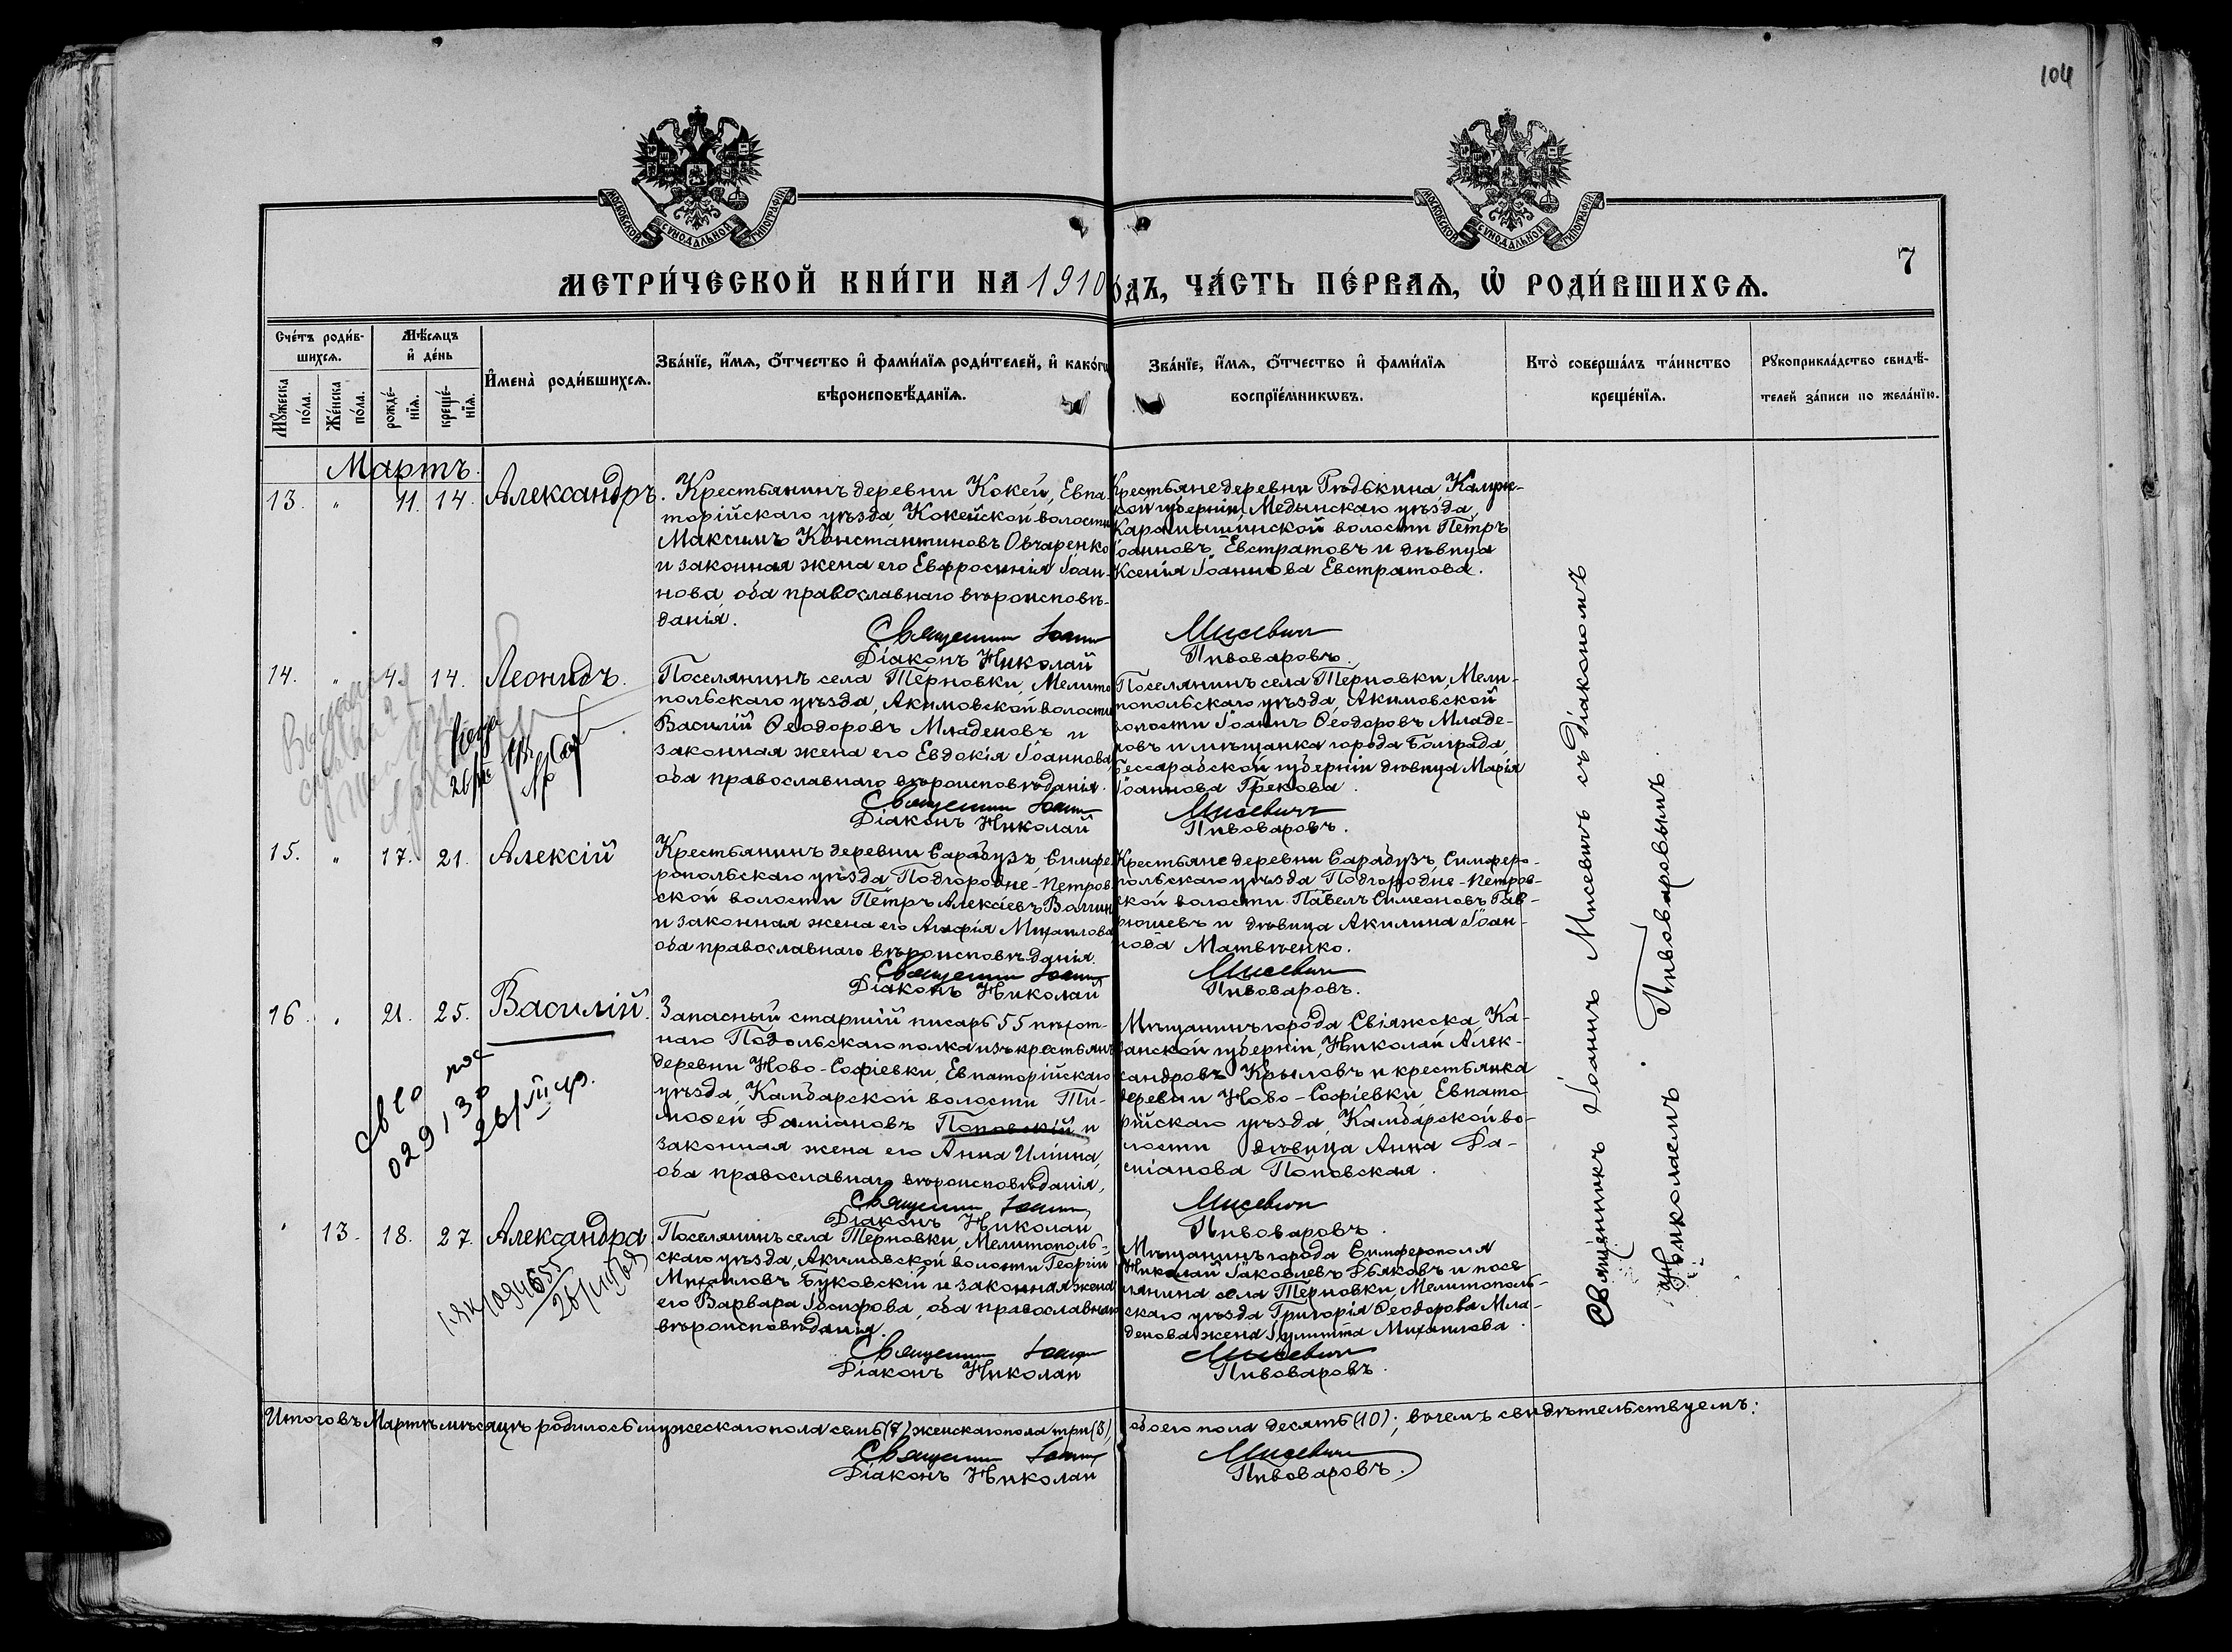 104
МОСКОВСКОЙ СѴНОДАЛЬНОЙ ТИПОГРАФІИ
МОСКОВСКОЙ СѴНОДАЛЬНОЙ ТИПОГРАФІИ
7
МЕТРИ́ЧЕСКОЙ КНИ́ГИ НА 1910 О́ДЪ, ЧА́СТЬ ПЕ́РВАѦ, Ѽ РОДИ́ВШИХСѦ.
Сче́тъ роди́в-
шихсѧ.
Мꙋ́жеска по́ла.
Же́нска по́ла.
Мѣ́сѧцъ
и҆ де́нь
рожде́-нїѧ.
креще́-нїѧ.
И҆мена̀ роди́вшихсѧ.
Зва́нїе, и҆́мѧ, ѻ҆́тчество и҆ фами́лїѧ роди́телей, и҆ како́гѡ
вѣроисповѣ́данїѧ.
Зва́нїе, и҆́мѧ, ѻ҆́тчество и҆ фами́лїѧ
воспрїе́мникѡвъ.
Кто̀ соверша́лъ та́инство
креще́нїѧ.
Рꙋкоприкла́дство свидѣ́-
телей за́писи по жела́нїю.
Мартъ.
13. " 11. 14. Александръ.
Крестьянинъ деревни Кокей, Евпа-
торійскаго уѣзда, Кокейской волости
Максимъ Константиновъ Овчаренко
и законная жена его Евфросинія Іоан-
нова оба православнаго вѣроисповѣ-
данія.
Крестьяне деревни Рѣдькина, Калуж-
ской губерніи, Медынскаго уѣзда,
Карамышинской волости Петръ
Іоанновъ Евстратовъ и дѣвица
Ксенія Іоаннова Евстратова.
Священникъ Іоаннъ Мисевичъ
Діаконъ Николай Пивоваровъ.
14. " 4. 14. Леонидъ.
Поселянинъ села Терновки, Мелито
польскаго уѣзда, Акимовской волости
Василій Ѳеодоровъ Младеновъ и
законная жена его Евдокія Іоаннова,
оба православнаго вѣроисповѣданія.
Поселянинъ села Терновки, Мели-
топольскаго уѣзда, Акимовской
волости Іоаннъ Ѳеодоровъ Младе-
новъ и мѣщанка города Болграда,
Бессарабской губерніи дѣвица Марія
Іоаннова Грекова.
Священникъ Іоаннъ Мисевичъ
Діаконъ Николай Пивоваровъ.
15. " 17. 21. Алексій
Крестьянинъ деревни Сарабузъ, Симфе
ропольскаго уѣзда Подгородне-Петров
ской волости Петръ Алексіевъ
и законная жена его Агафія Михаилова
оба православнаго вѣроисповѣданія.
Крестьяне деревни Сарабузъ, Симферо-
польскаго уѣзда Подгородне-Петров-
ской волости Павелъ Симеоновъ Гав-
рюшевъ и дѣвица Акилина Іоан-
нова Матвѣенко.
Священникъ Іоаннъ Мисевичъ
Діаконъ Николай Пивоваровъ.
16. " 21. 25. Василій.
Запасный старшій писарь 55 пѣхот-
наго Подольскаго полка изъ крестьянъ
деревни Ново-Софіевки, Евпаторійскаго
уѣзда, Камбарской волости Ти-
моѳей Даміановъ Поповскій и
законная жена его Анна Илiина,
оба православнаго вѣроисповѣданія,
Мѣщанинъ города Свіяжска, Ка-
занской губерніи, Николай Алек-
сандровъ Крыловъ и крестьянка
деревни Ново-Софіевки, Евпато-
рійскаго уѣзда, Камбарской во-
лости дѣвица Анна Да-
міанова Поповская.
029130
Священникъ Іоаннъ Мисевичъ
Діаконъ Николай Пивоваровъ.
" 13. 18. 27. Александра
Поселянинъ села Терновки, Мелитополь-
скаго уѣзда, Акимовской волости Георгій
Михаиловъ Буковскій и законная жена
его Варвара Іосифова, оба православнаго
вѣроисповѣданія.
Мѣщанинъ города Симферополя
Николай Іаковлевъ Дьяковъ и посе
лянина села Терновки, Мелитополь-
скаго уѣзда Григорія Ѳеодорова Мла-
денова жена Іулитта Михаилова.
Священникъ Іоаннъ Мисевичъ
Діаконъ Николай Пивоваровъ.
Священникъ Іоаннъ Мисевичъ съ Діакономъ
Николаемъ Пивоваровымъ.
Итого въ Мартѣ мѣсяцѣ родилось мужескаго пола семь (7) женскаго пола три (3), обоего пола десять (10); въ чемъ свидѣтельствуемъ:
Священникъ Іоаннъ Мисевичъ
Діаконъ Николай Пивоваровъ.